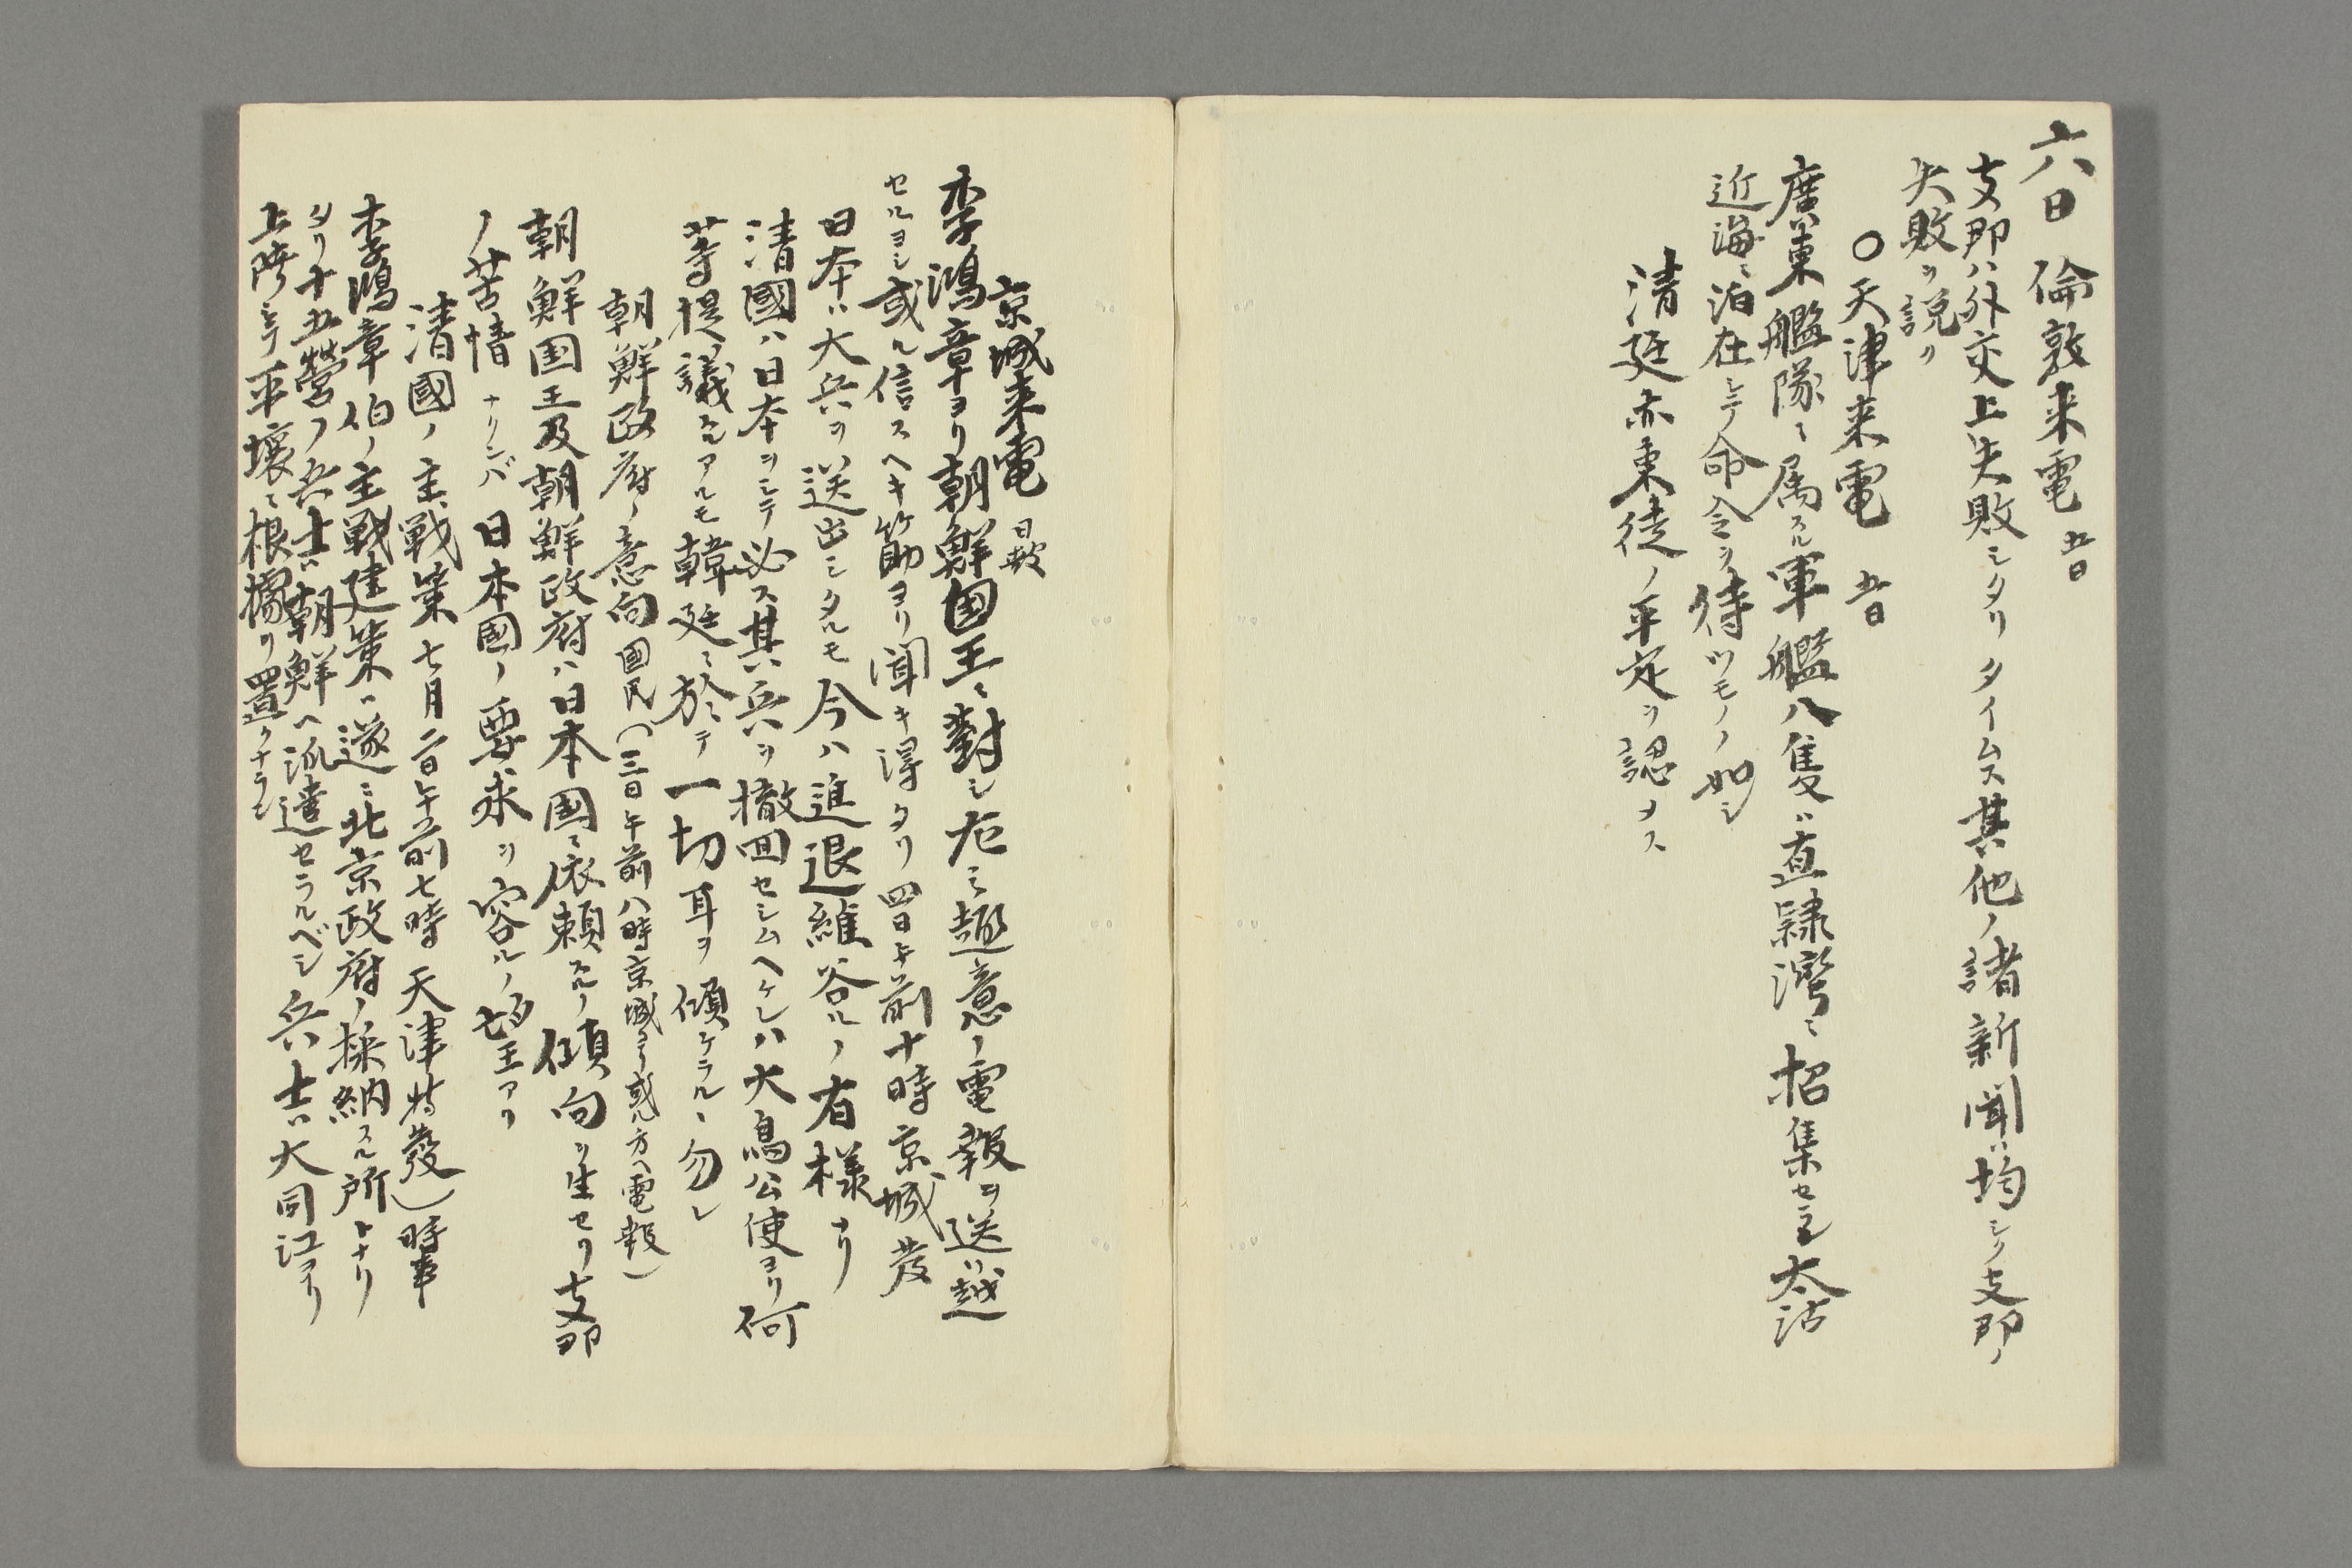 六日　倫敦来電　五日
支那ハ外交上失敗シタリタイムス其他ノ諸新聞ハ均シク支那ノ
失敗ヲ説ク
〇天津来電　五日
廣東艦隊ニ属スル軍艦八隻ハ直隷灣ニ招集セラレ太沽
近海ニ泊在シテ命令ヲ待ツモノヽ如シ
清廷亦東徒ノ平定ヲ認メス
京城来電
李鴻章ヨリ朝鮮国王ニ對シ左ニ趣意ノ電報ヲ送リ越
セルヨシ或ル信スヘキ筋ヨリ聞キ得タリ四日午前十時京城発
日本ハ大兵ヲ送出シタルモ今ハ進退維谷ルノ有様ナリ
清國ハ日本ヲシテ必ス其兵ヲ撤回セシムヘケレハ大鳥公使ヨリ何
等提議スルアルモ韓廷ニ於テ一切耳ヲ傾ケラルヽ勿レ
朝鮮政府ノ意向　国民（三日午前八時京城ヨリ或ル方ヘ電報）
朝鮮国王及朝鮮政府ハ日本國ニ依頼スルノ傾向ヲ生セリ支那
ノ苦情ナクンバ日本國ノ要求ヲ容ルノ望アリ
清國ノ主戦策　七月二日午前七時　天津特發）時事
李鴻章伯ノ主戦建策ハ遂ニ北京政府ノ採納スル所トナリ
タリ十五營ノ兵士ハ朝鮮ヘ派遣セラルベシ兵士ハ大同江ヨリ
上陸シテ平壌ニ根據ヲ置クナラン